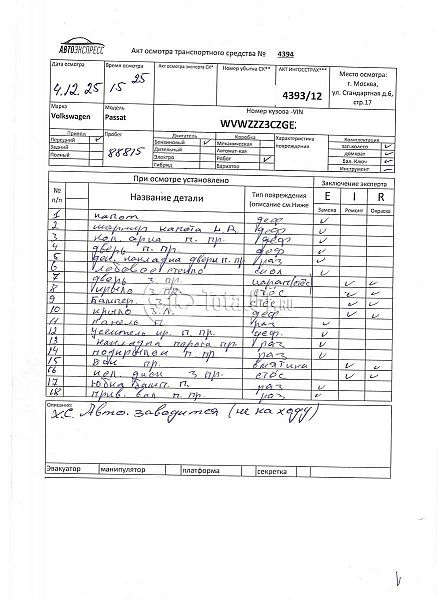 АВТОЭКСПРЕСС
Акт осмотра транспортного средства № 4394
Дата осмотра
Время осмотра
Акт осмотра эксперта СК*
Номер убытка СК**
АКТ ИНГОССТРАХ***
Место осмотра:
г. Москва,
ул. Стандартная д.6,
стр.17
4.12.25
15 25
4393/12
Марка
Модель
Номер кузова -VIN
Volkswagen
Passat
WVWZZZ3CZGE
Привод
Пробег
Двигатель
Коробка
Характеристика повреждения
Комплектация
Передний
Бензиновый
Механическая
зап.колесо
Задний
Дизельный
Автомат-кая
домкрат
Полный
88815
Электро
Робот
Бал. Ключ
Гибрид
Вариатор
Инструмент
При осмотре установлено
Заключение эксперта
№ п/п
Название детали
Тип повреждения (описание см.Ниже
E I R
Замена Ремонт Окраска
1 капот деф
2 шарнир капота деф
3 пр. деф
4 дверь п. пр. деф
5 накладка двери п. пр. раз
6 лобовое стекло скол
7 дверь з. пр.
8 крыло з. пр.
9 бампер з.
10 крыло з.л. деф
11 панель п. раз
12 усилитель пр. деф.
13 накладка порога пр. раз
14 подкрылок п. пр. раз
15 пр. вмятина
16 диск з. пр.
17 юбка бамп. п. раз
18 прив. вал п. пр. раз
Total
Описание:
х.с. Авто. заводится (не на ходу)
Эвакуатор
манипулятор
платформа
секретка